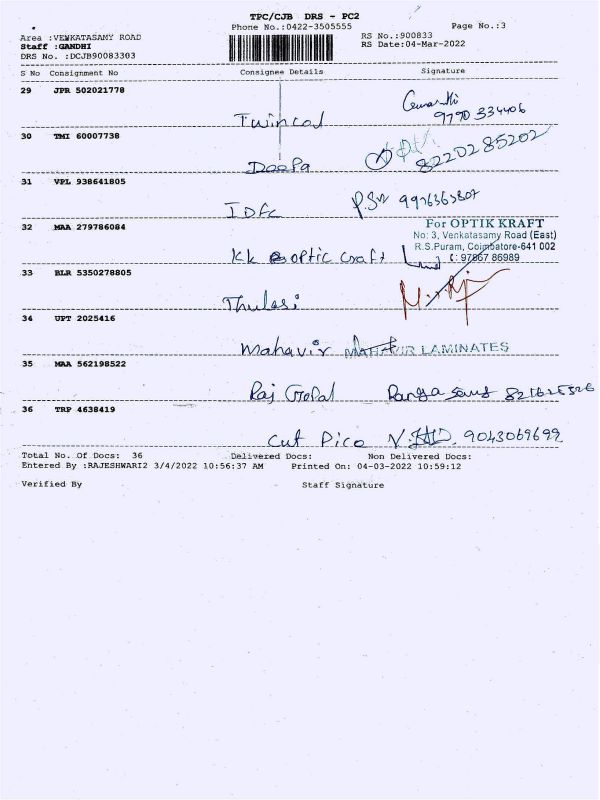 TPC/CJB DRS - PC2
Phone No.:0422-3505555 Page No.:3
Area :VENKATASAMY ROAD RS No.:900833
Staff :GANDHI RS Date:04-Mar-2022
DRS No. :DCJB90083303
S No Consignment No Consignee Details Signature
29 JPR 502021778
Twincad 9790 334406
30 TMI 60007738
Deepa 82202 85202
31 VPL 938641805
IDFC P.S 9976363807
32 MAA 279786084
For OPTIK KRAFT
No: 3, Venkatasamy Road (East)
R.S.Puram, Coimbatore-641 002
KK optic craft : 97867 86989
33 BLR 5350278805
Thulasi
34 UPT 2025416
Mahavir MAHAVIR LAMINATES
35 MAA 562198522
Raj Gopal
36 TRP 4638419
Cut Pice 9043069699
Total No. Of Docs: 36 Delivered Docs: Non Delivered Docs:
Entered By :RAJESHWARI2 3/4/2022 10:56:37 AM Printed On: 04-03-2022 10:59:12
Verified By Staff Signature